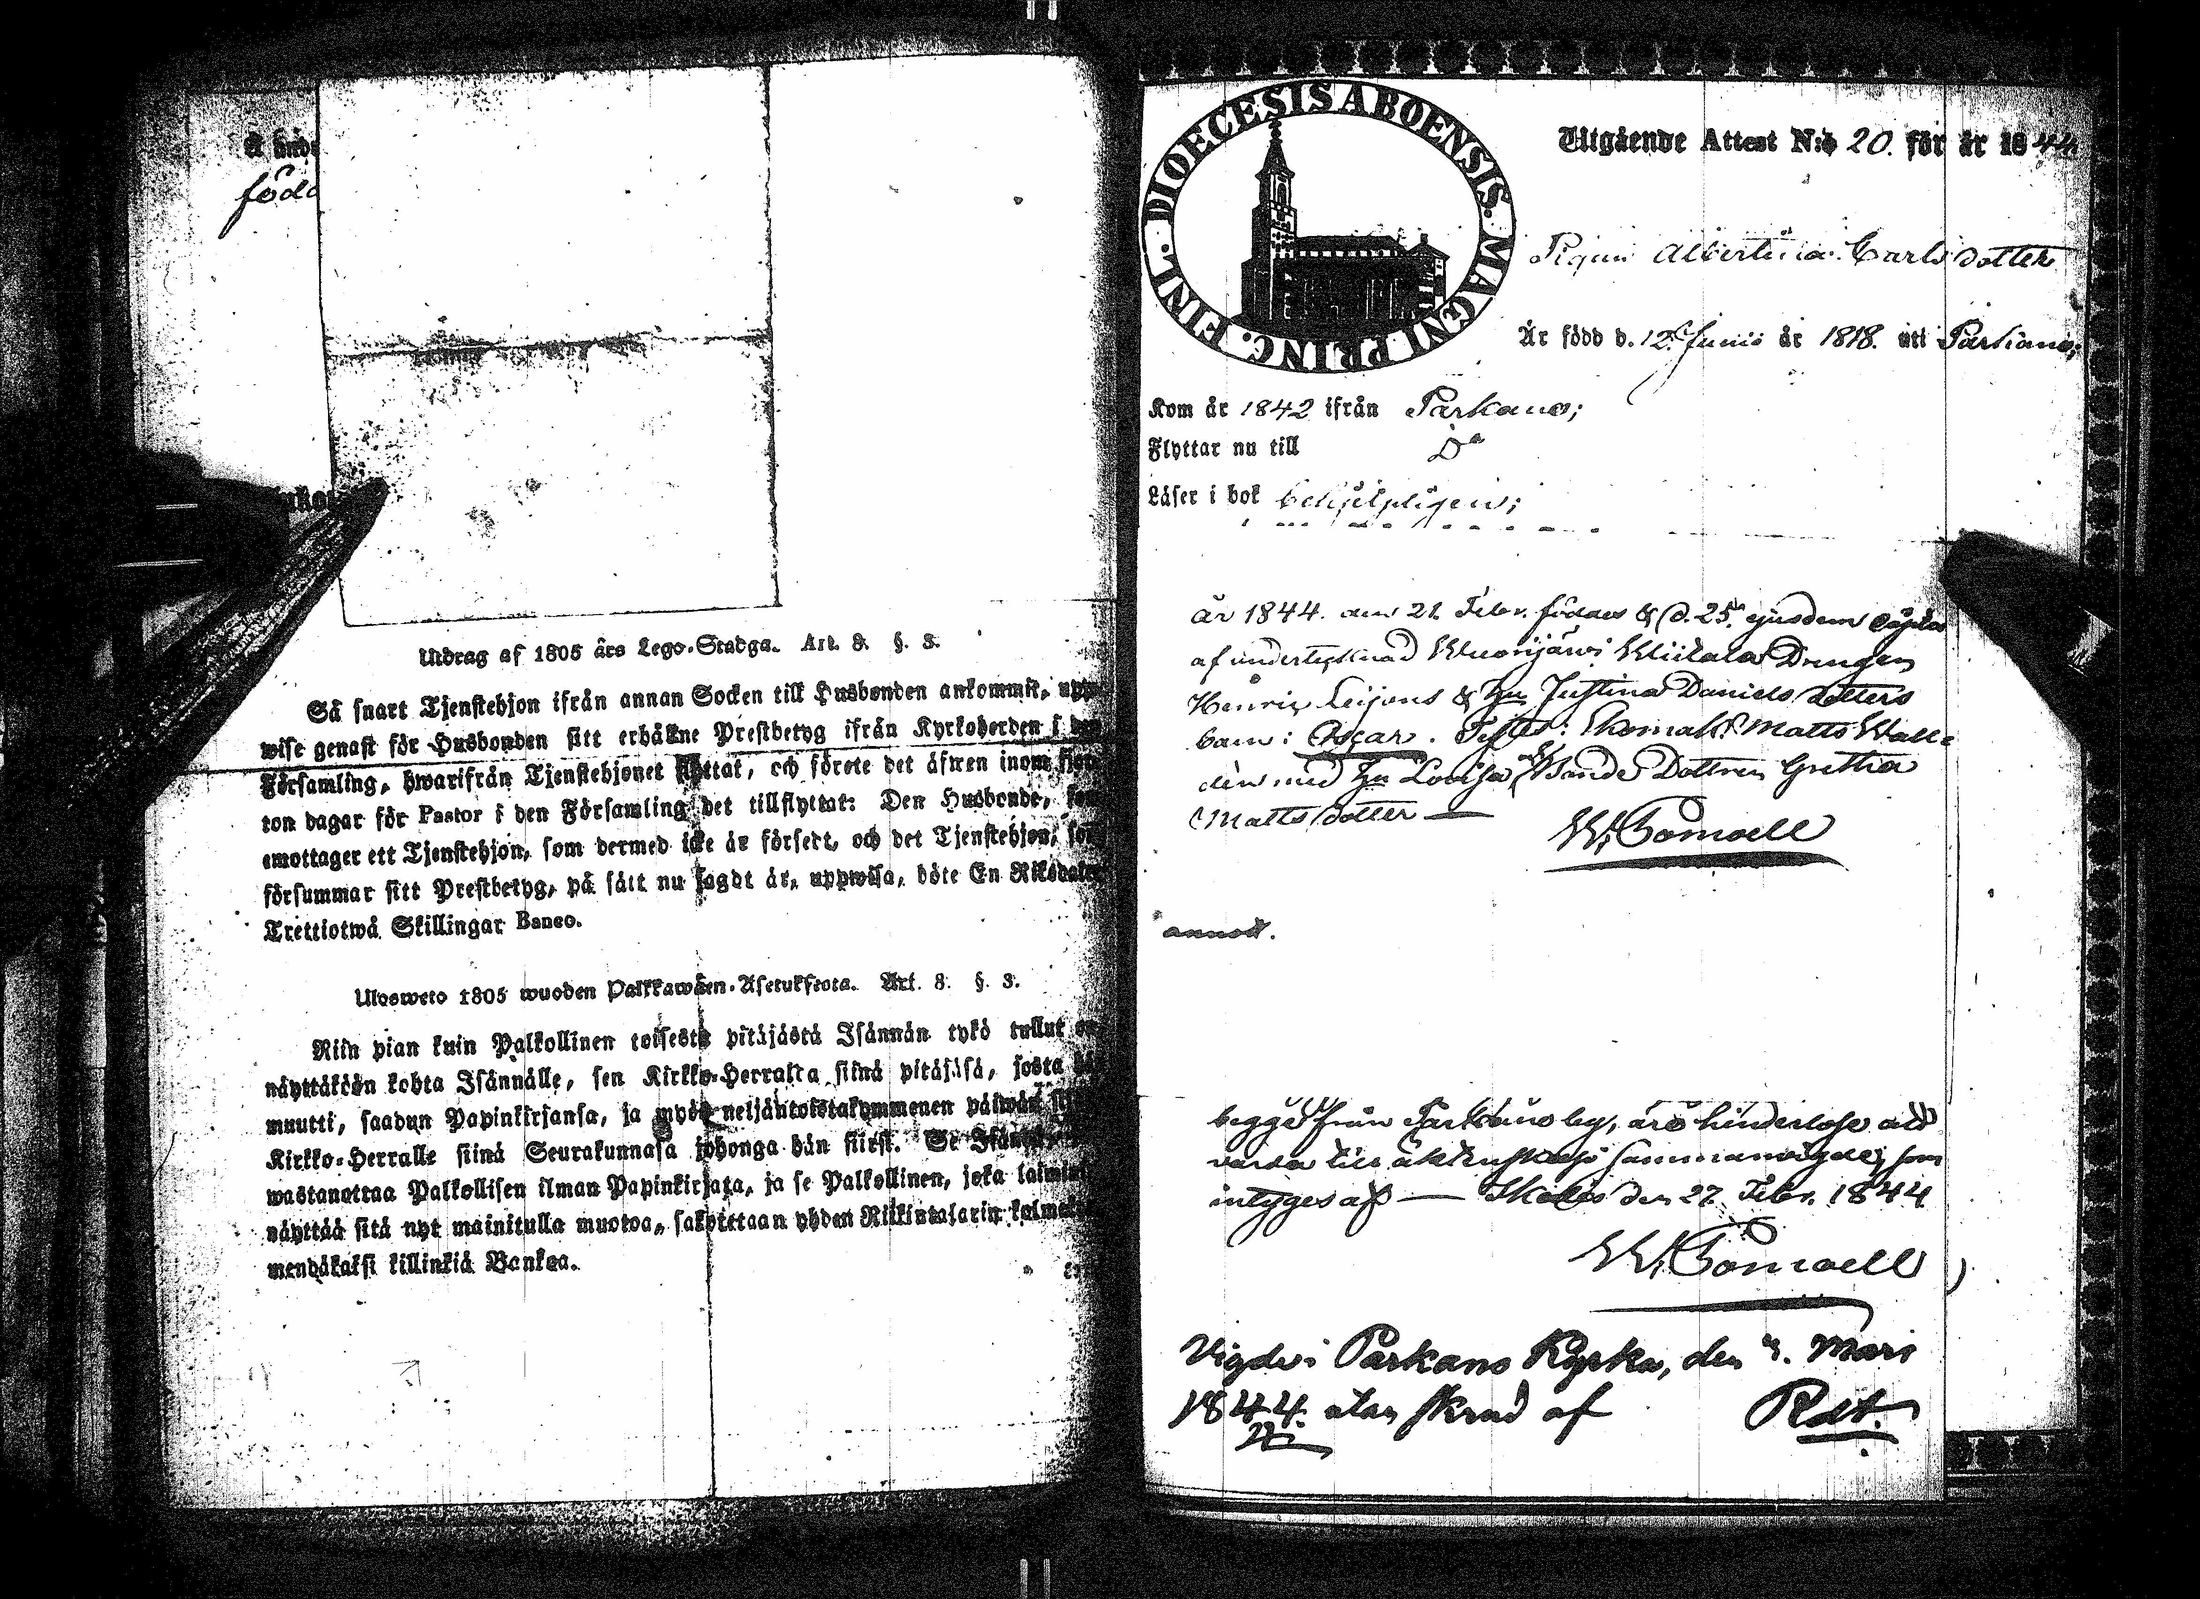 född
Utdrag af 1805 års Lego-Stadga. Art. 8. §. 3.
Så snart Tjenstehjon ifrån annan Socken till Husbonden ankommit, upp-
wise genast för Husbonden sitt erhållne Prestbetyg ifrån Kyrkoherden i den
Församling, hwarifrån Tjenstehjonet flyttat, och förete det äfwen inom fjor-
ton dagar för Pastor i den Församling det tillflyttat: Den Husbonde, som
emottager ett Tjenstehjon, som dermed icke är försedt, och det Tjenstehjon, som
försummar sitt Prestbetyg, på sätt nu sagdt är, uppwisa, böte En Riksdaler
Trettiotwå Skillingar Banco.
Ulosweto 1805 wuoden Palkkawäen-Asetuksesta. Art. 8. §. 3.
Niin pian kuin Palkollinen toisesta pitäjästä Isännän tykö tullut on
näyttäköön kohta Isännälle, sen Kirkko-Herralta siinä pitäjäsä, josta hän
muutti, saadun Papinkirjansa, ja myös neljäntoistakymmenen päiwän
Kirkko-Herralle siinä Seurakunnasa johonga hän siirsi. Se Isäntä
wastanottaa Palkollisen ilman Papinkirjata, ja se Palkollinen, joka laimin
näyttää sitä nyt mainitulla muotoa, sakotettaan yhden Riikintalarin kolme
mendäkaksi killinkiä Bankoa.
DIOECESIS ABOENSIS. MAGNI PRINC. FINL.
Utgående Attest N:o 20. för år 1844.
Pigan Albertina Carlsdotter
Är född d. 12. Junii år 1818. uti Parkano;
Kom år 1842 ifrån Parkano;
Flyttar nu till Do
Läser i bok behjelpligen;
år 1844. den 21. Febr. föddes & d. 25. ejusdem döptes
af undertecknad Wuorijärwi Wiitala Drengen
Henric Leijons & hu Justina Daniels dotters
barn: Oscar. Test: Thomas Matts
den med hu Lovisa, Bonde Dottren Gretha
Matts dotter —
W. Pomoell
annot.
begge från Parkano by, äro hinderlöse att
varda till äktenskap sammanvigde, som
intygges af — Ikalis den 27 Febr. 1844
W. Pomoell
Vigde i Parkano Kyrka, den 4. Mars
1844. utan skrud af